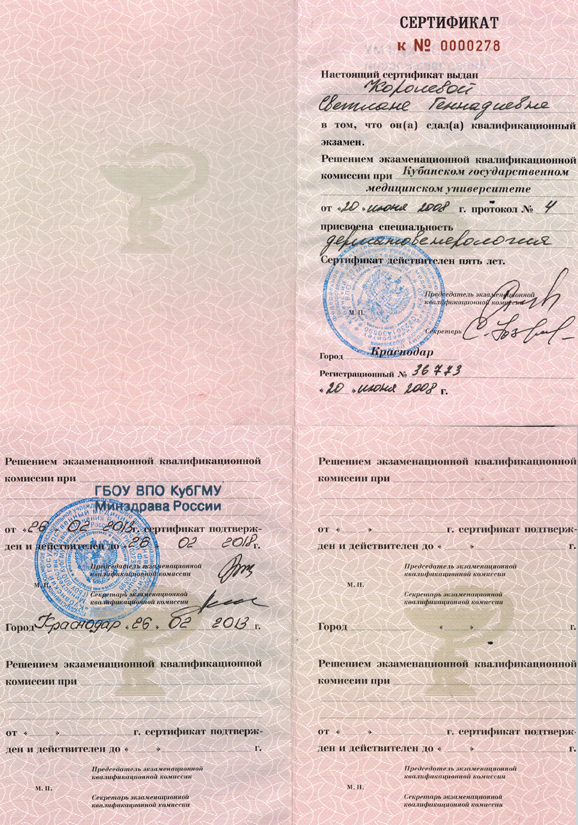 СЕРТИФИКАТ
К № 0000278
Настоящий сертификат выдан
Королевой
Светлане Геннадиевне
в том, что он(а) сдал(а) квалификационный
экзамен.
Решением экзаменационной квалификационной
комиссии при Кубанском государственном
медицинском университете
от «20» июня 2008 г. протокол № 4
присвоена специальность
дерматовенерология
Сертификат действителен пять лет.
Председатель экзаменационной
квалификационной комиссии
М. П.
Секретарь
Город Краснодар
Регистрационный № 36723
«20» июня 2008 г.
Решением экзаменационной квалификационной
комиссии при
ГБОУ ВПО КубГМУ
Минздрава России
от «26» 02 2013г. сертификат подтверж-
ден и действителен до «26» 02 2018г.
Председатель экзаменационной
квалификационной комиссии
М. П.
Секретарь экзаменационной
квалификационной комиссии
Город Краснодар «26» 02 2013 г.
Решением экзаменационной квалификационной
комиссии при
от « » г. сертификат подтверж-
ден и действителен до « » г.
Председатель экзаменационной
квалификационной комиссии
М. П.
Секретарь экзаменационной
квалификационной комиссии
Решением экзаменационной квалификационной
комиссии при
от « » г. сертификат подтверж-
ден и действителен до « » г.
Председатель экзаменационной
квалификационной комиссии
М. П.
Секретарь экзаменационной
квалификационной комиссии
Город « » г.
Решением экзаменационной квалификационной
комиссии при
от « » г. сертификат подтверж-
ден и действителен до « » г.
Председатель экзаменационной
квалификационной комиссии
М. П.
Секретарь экзаменационной
квалификационной комиссии